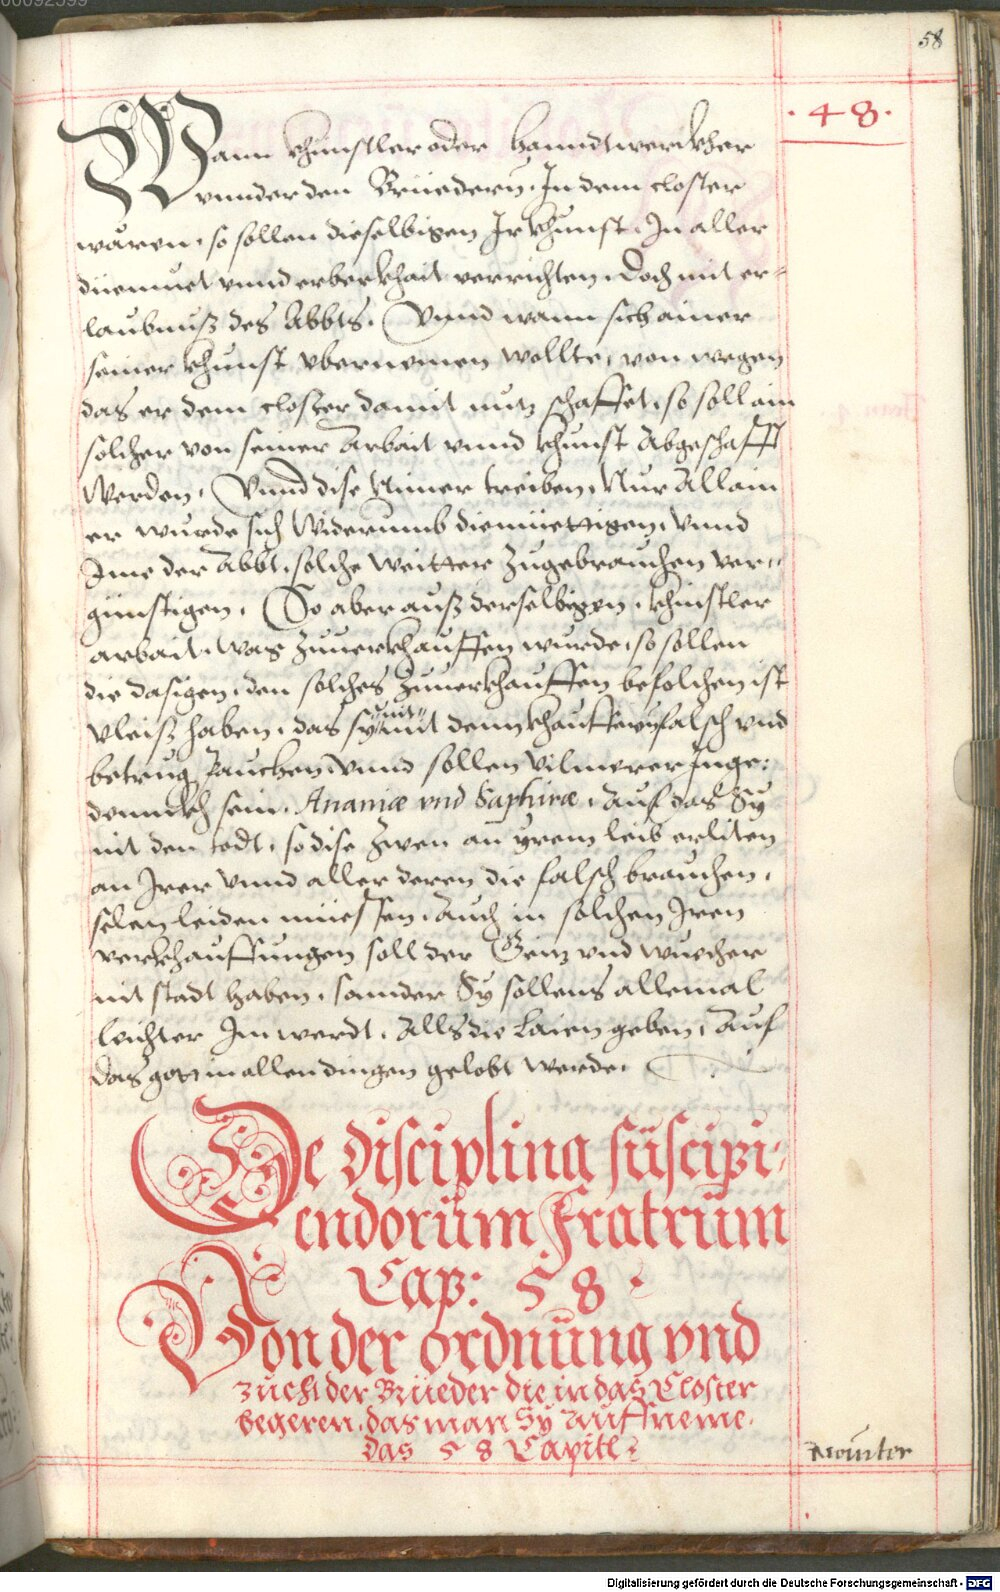 58
. 48 .
Wann khünstler oder hanndtwerckher
vnnder den Brüedern, In dem closter
wären, so sollen dieselbigen Ir khunst, In aller
diemuet vnnd erberkhait verrichten, doch mit er-
laubnuß des Abbts. Vnnd wann sich ainer
seiner khunst vbernemen wollte, von wegen
das er dem closter damit nutz schaffet, so soll ain
solcher von seiner Arbait vnnd khunst Abgeschafft
werden, Vnnd dise nimer treiben, Nur Allain
er wurde sich widerumb diemüettigen, Vnnd
Ime der Abbt, solche weitter zugebrauchen ver-
günstigen. So aber auß derselbigen, khinstler
arbait, was zuuerkhauffen wurde, so sollen
die dasigen, den solches zuuerkhauffen befolchen ist
vleiß haben, das sy nit mit dem khauffen falsch vnd
betrug brauchen, Vnnd sollen vilmerer Inge-
dennckh sein, Ananiæ vnd Saphiræ, Auf das Sy
nit den todt, so dise zwen an yrem leib erliten
an Irer vnnd aller deren die falsch brauchen,
selen leiden müessen, Auch in solchen Iren
verkhauffungen soll der Geitz vnd wuecher
nit stadt haben, sonnder Sy sollens allemal
leichter Im werdt, Alls die Laien geben, Auf
das got in allen dingen gelobt werde.
De disciplina süscipi-
endorüm Fratrüm
Cap: 58.
Von der ordnüng vnd
zucht der Brüeder die in daß Closter
begeren, das man Sy auffneme.
Das 58 Capitl
Nouiter
Digitalisierung gefördert durch die Deutsche Forschungsgemeinschaft - DFG